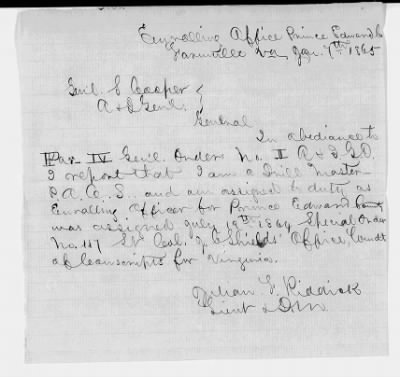 Enrolling Office Prince Edward Co
Farmville Va Jan. 7th 1865
Genl. S Cooper
A & I Genl.
General
In obediance to
Par IV Genl. Orders No. I A & I G O.
I report that I am a Drill Master
P. A. C. S., and am assigned to duty as
Enrolling Officer for Prince Edward County
was assigned July 19th 1864 Special Order
No. 117 Lt Col. J C Shields' Office, Comdt
of Conscripts for Virginia.
F. Riddick
Lieut & D M